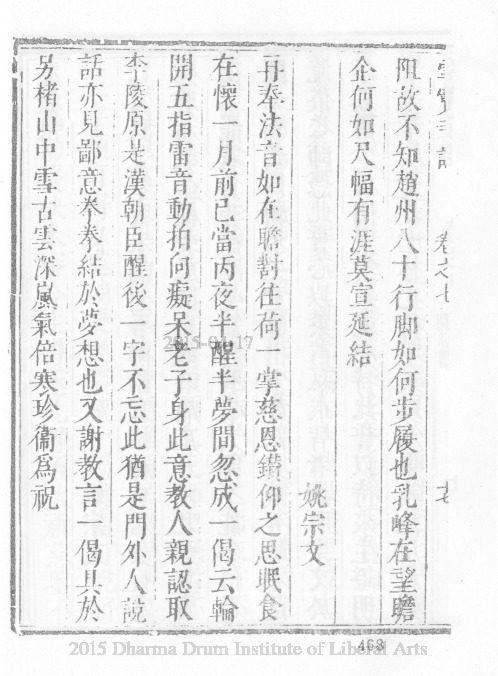 雪竇寺誌 卷之七 十七
阻故不知趙州八十行脚如何步履也乳峰在望瞻
企何如尺幅有涯莫宣延結
姚宗文
再奉法音如在瞻對往荷一掌慈恩鑽仰之思眠食
在懷一月前已當丙夜半醒半夢間忽成一偈云輪
開五指雷音動拍向癡呆老子身此意教人親認取
李陵原是漢朝臣醒後一字不忘此猶是門外人說
話亦見鄙意拳拳結於夢想也又謝教言一偈具於
另楮山中雪古雲深嵐氣倍寒珍衞爲祝
2015-04-17
468
2015 Dharma Drum Institute of Liberal Arts